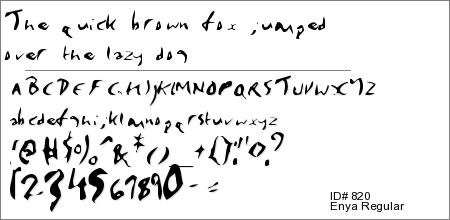 The quick brown fox jumped
over the lazy dog
ABCDEFGHIJKLMNOPQRSTUVWXYZ
abcdefghijklmnopqrstuvwxyz
!@#$%^&*()_+{}:"<>?
1234567890-=
ID# 820
Enya Regular